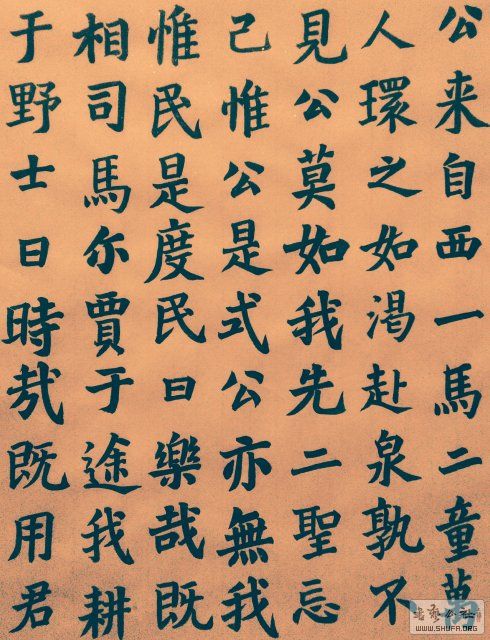 公来自西一馬二童萬
人環之如渴赴泉孰不
見公莫如我先二聖忘
己惟公是式公亦無我
惟民是度民曰樂哉既
相司馬尔賈于途我耕
于野士曰時哉既用君
WWW.SHUFA.ORG